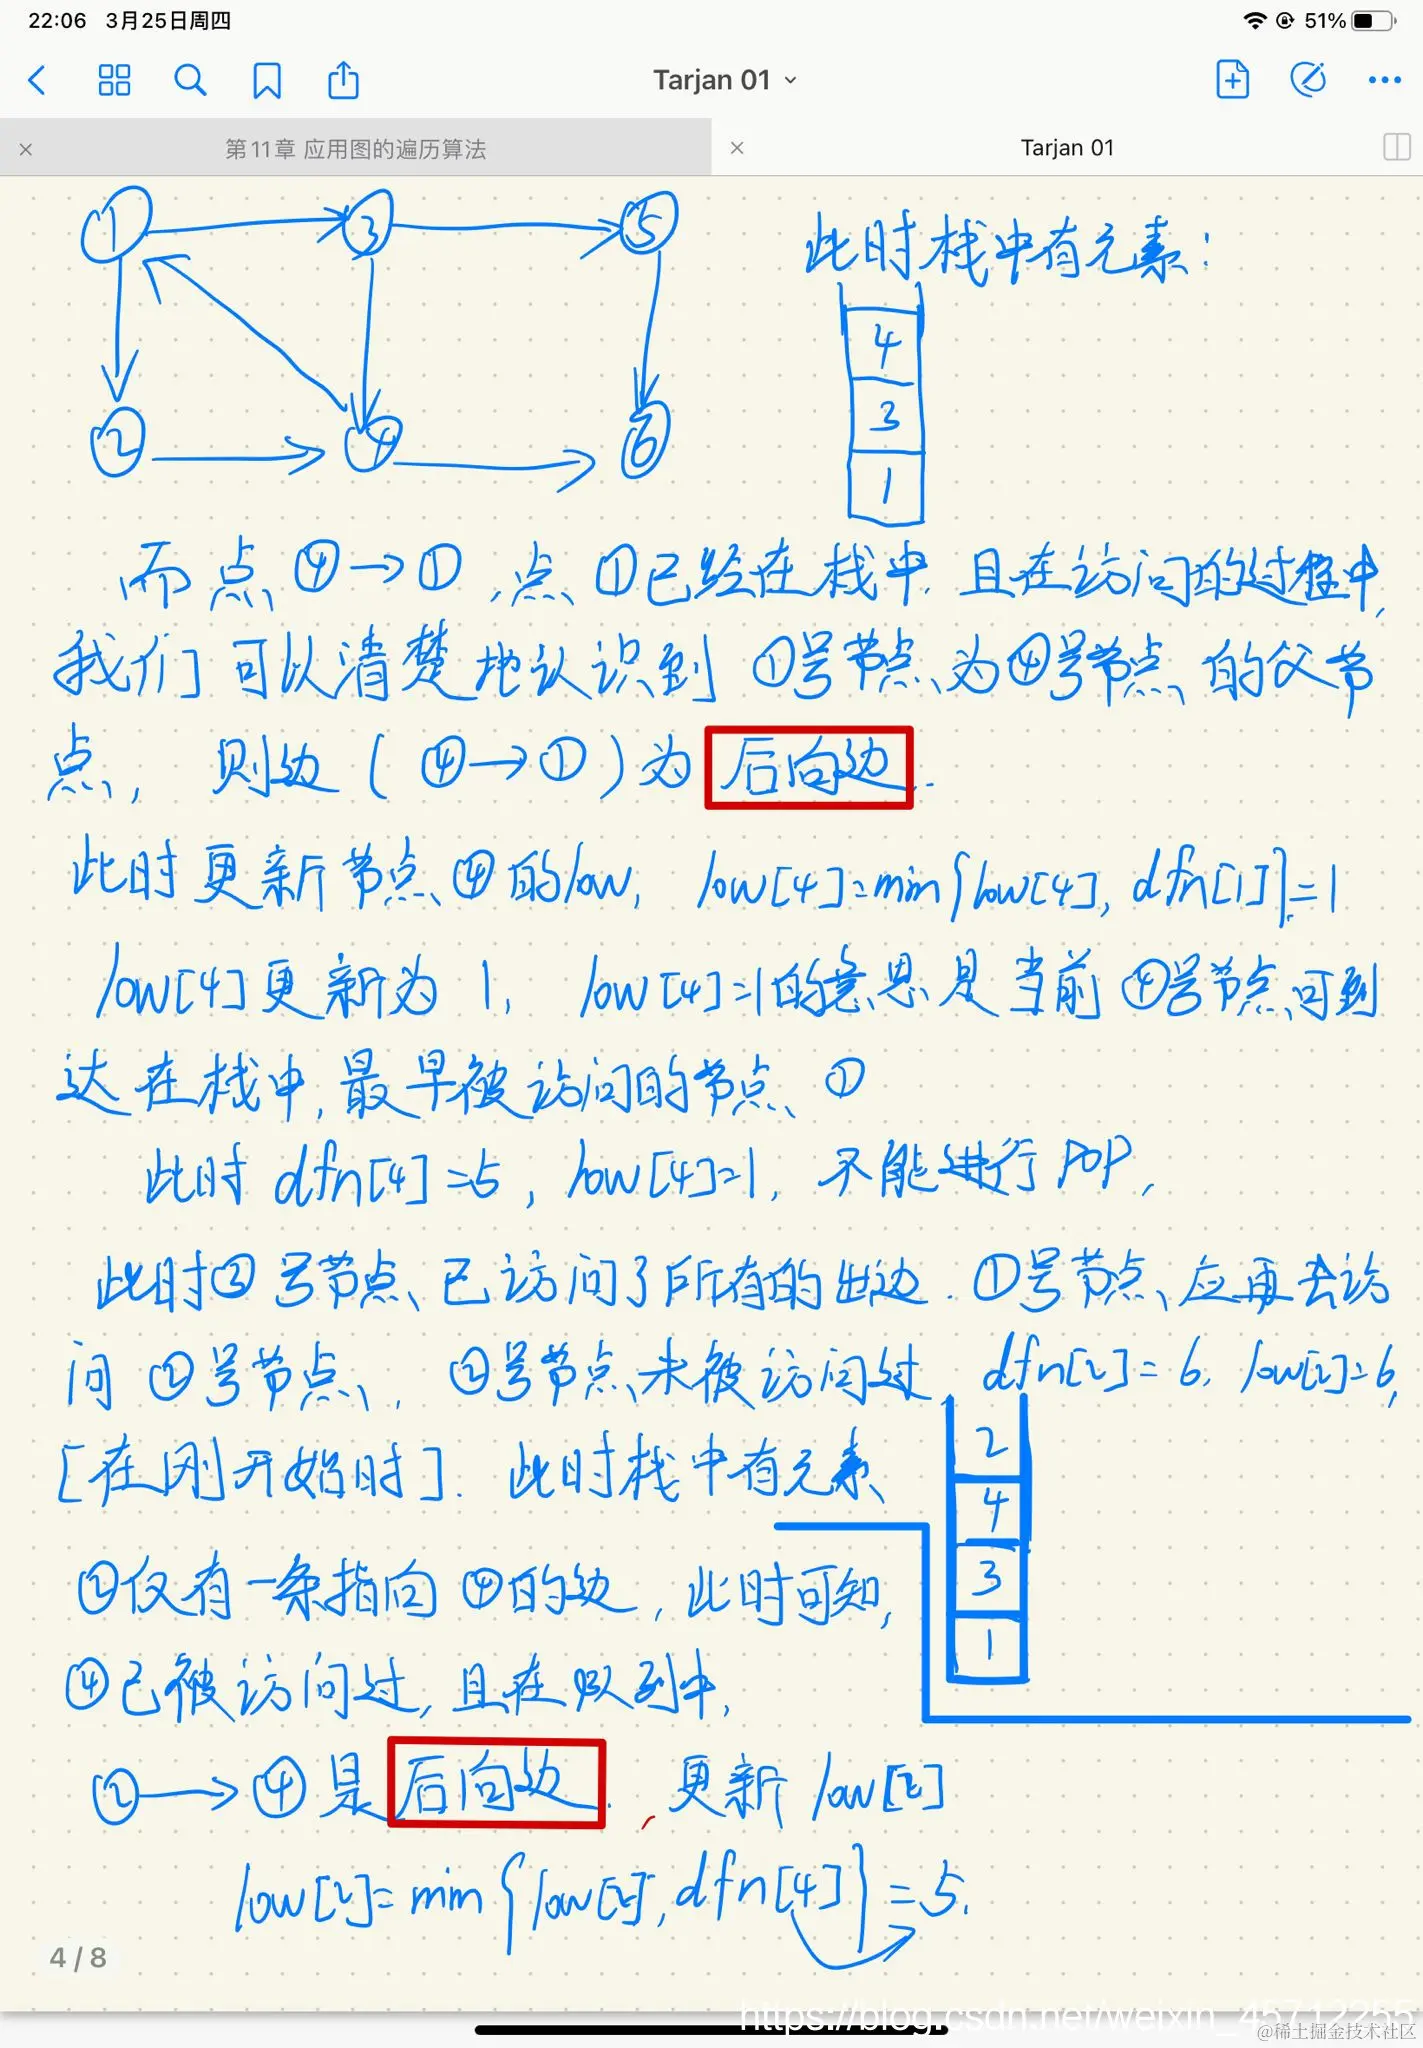 22:06 3月25日周四
51%
Tarjan 01
第11章 应用图的遍历算法
Tarjan 01
① ③ ⑤
② ④ ⑥
此时栈中有元素:
4
3
1
而点④→①,点①已经在栈中.且在访问的过程中,
我们可以清楚地认识到①号节点为④号节点的父节
点, 则边(④→①)为后向边.
此时更新节点④的low, low[4]=min{low[4], dfn[1]}=1
low[4]更新为1, low[4]=1的意思是当前④号节点可到
达在栈中,最早被访问的节点①
此时dfn[4]=5, low[4]=1, 不能进行POP,
此时③号节点已访问了所有的出边.①号节点应再去访
问②号节点, ②号节点未被访问过, dfn[2]=6, low[2]=6,
[在刚开始时]. 此时栈中有元素
2
4
3
1
②仅有一条指向④的边, 此时可知,
④已被访问过,且在队列中,
②→④是后向边, 更新low[2]
low[2]=min{low[2], dfn[4]}=5.
4 / 8
https://blog.csdn.net/weixin_45712255
@稀土掘金技术社区